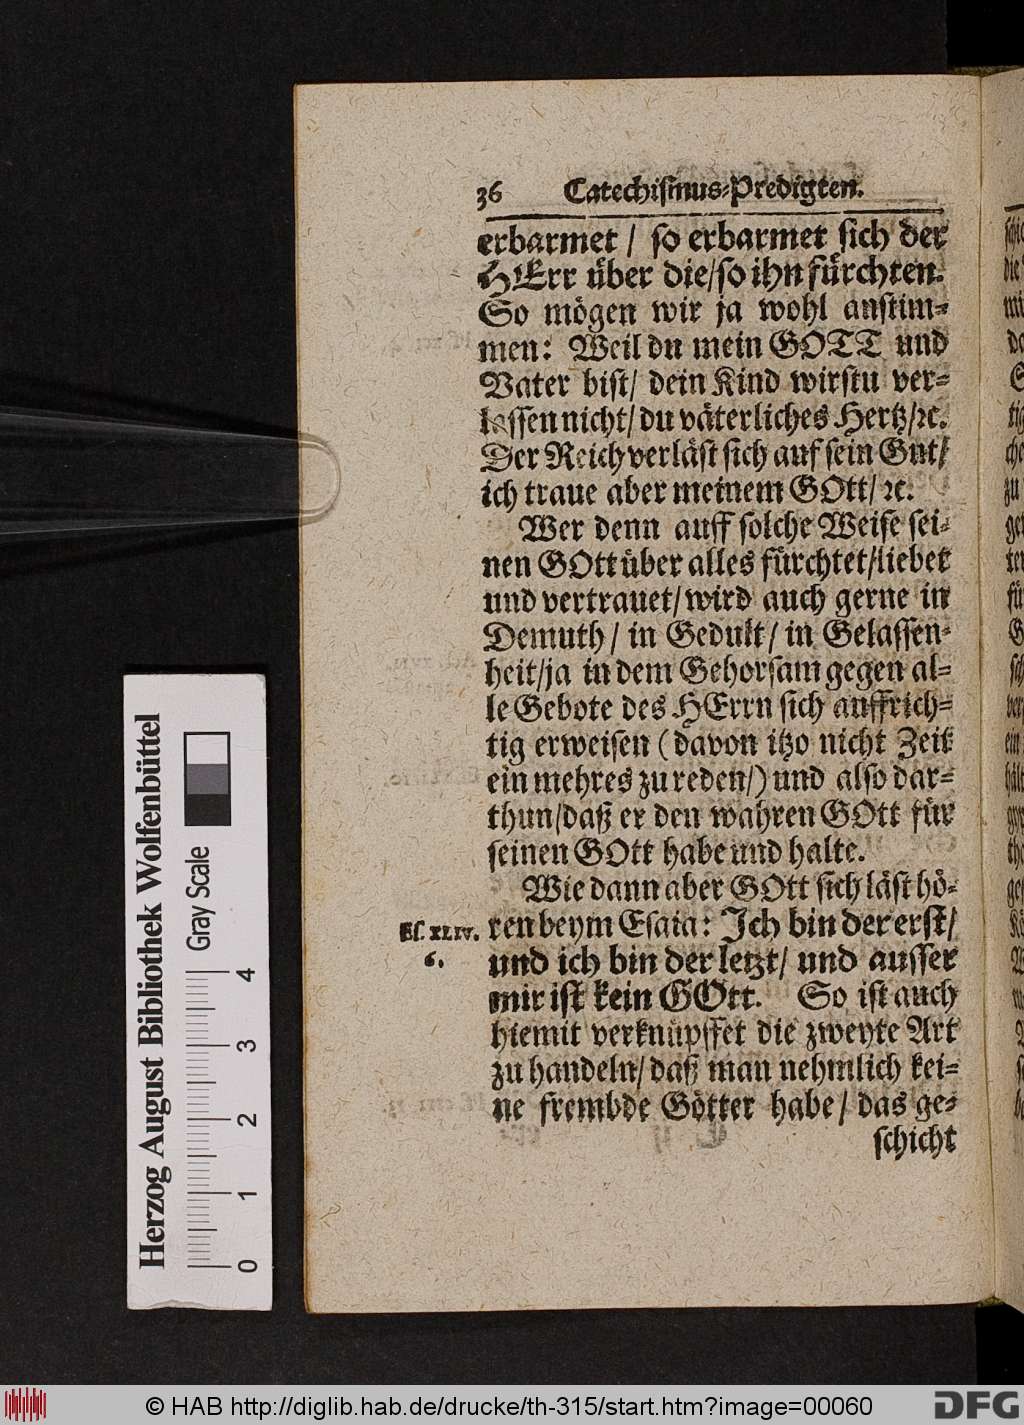 36 Catechismus-Predigten.
erbarmet / so erbarmet sich der
HErr über die/so ihn fürchten.
So mögen wir ja wohl anstim-
men: Weil du mein GOTT und
Vater bist/ dein Kind wirstu ver-
lassen nicht/ du väterliches Hertz/ꝛc.
Der Reich verläst sich auf sein Gut/
ich traue aber meinem GOtt/ ꝛc.
Wer denn auff solche Weise sei-
nen GOtt über alles fürchtet/liebet
und vertrauet/ wird auch gerne in
Demuth / in Gedult/ in Gelassen-
heit/ja in dem Gehorsam gegen al-
le Gebote des HErrn sich auffrich-
tig erweisen (davon itzo nicht Zeit
ein mehres zu reden/) und also dar-
thun/daß er den wahren GOtt für
seinen GOtt habe und halte.
Wie dann aber GOtt sich läst hö-
Es. XLIV. ren beym Esaia: Ich bin der erst/
6. und ich bin der letzt/ und ausser
mir ist kein GOtt. So ist auch
hiemit verknüpffet die zweyte Art
zu handeln/ daß man nehmlich kei-
ne frembde Götter habe/ das ge-
schicht
Herzog August Bibliothek Wolfenbüttel
Gray Scale
0 1 2 3 4
© HAB http://diglib.hab.de/drucke/th-315/start.htm?image=00060
DFG